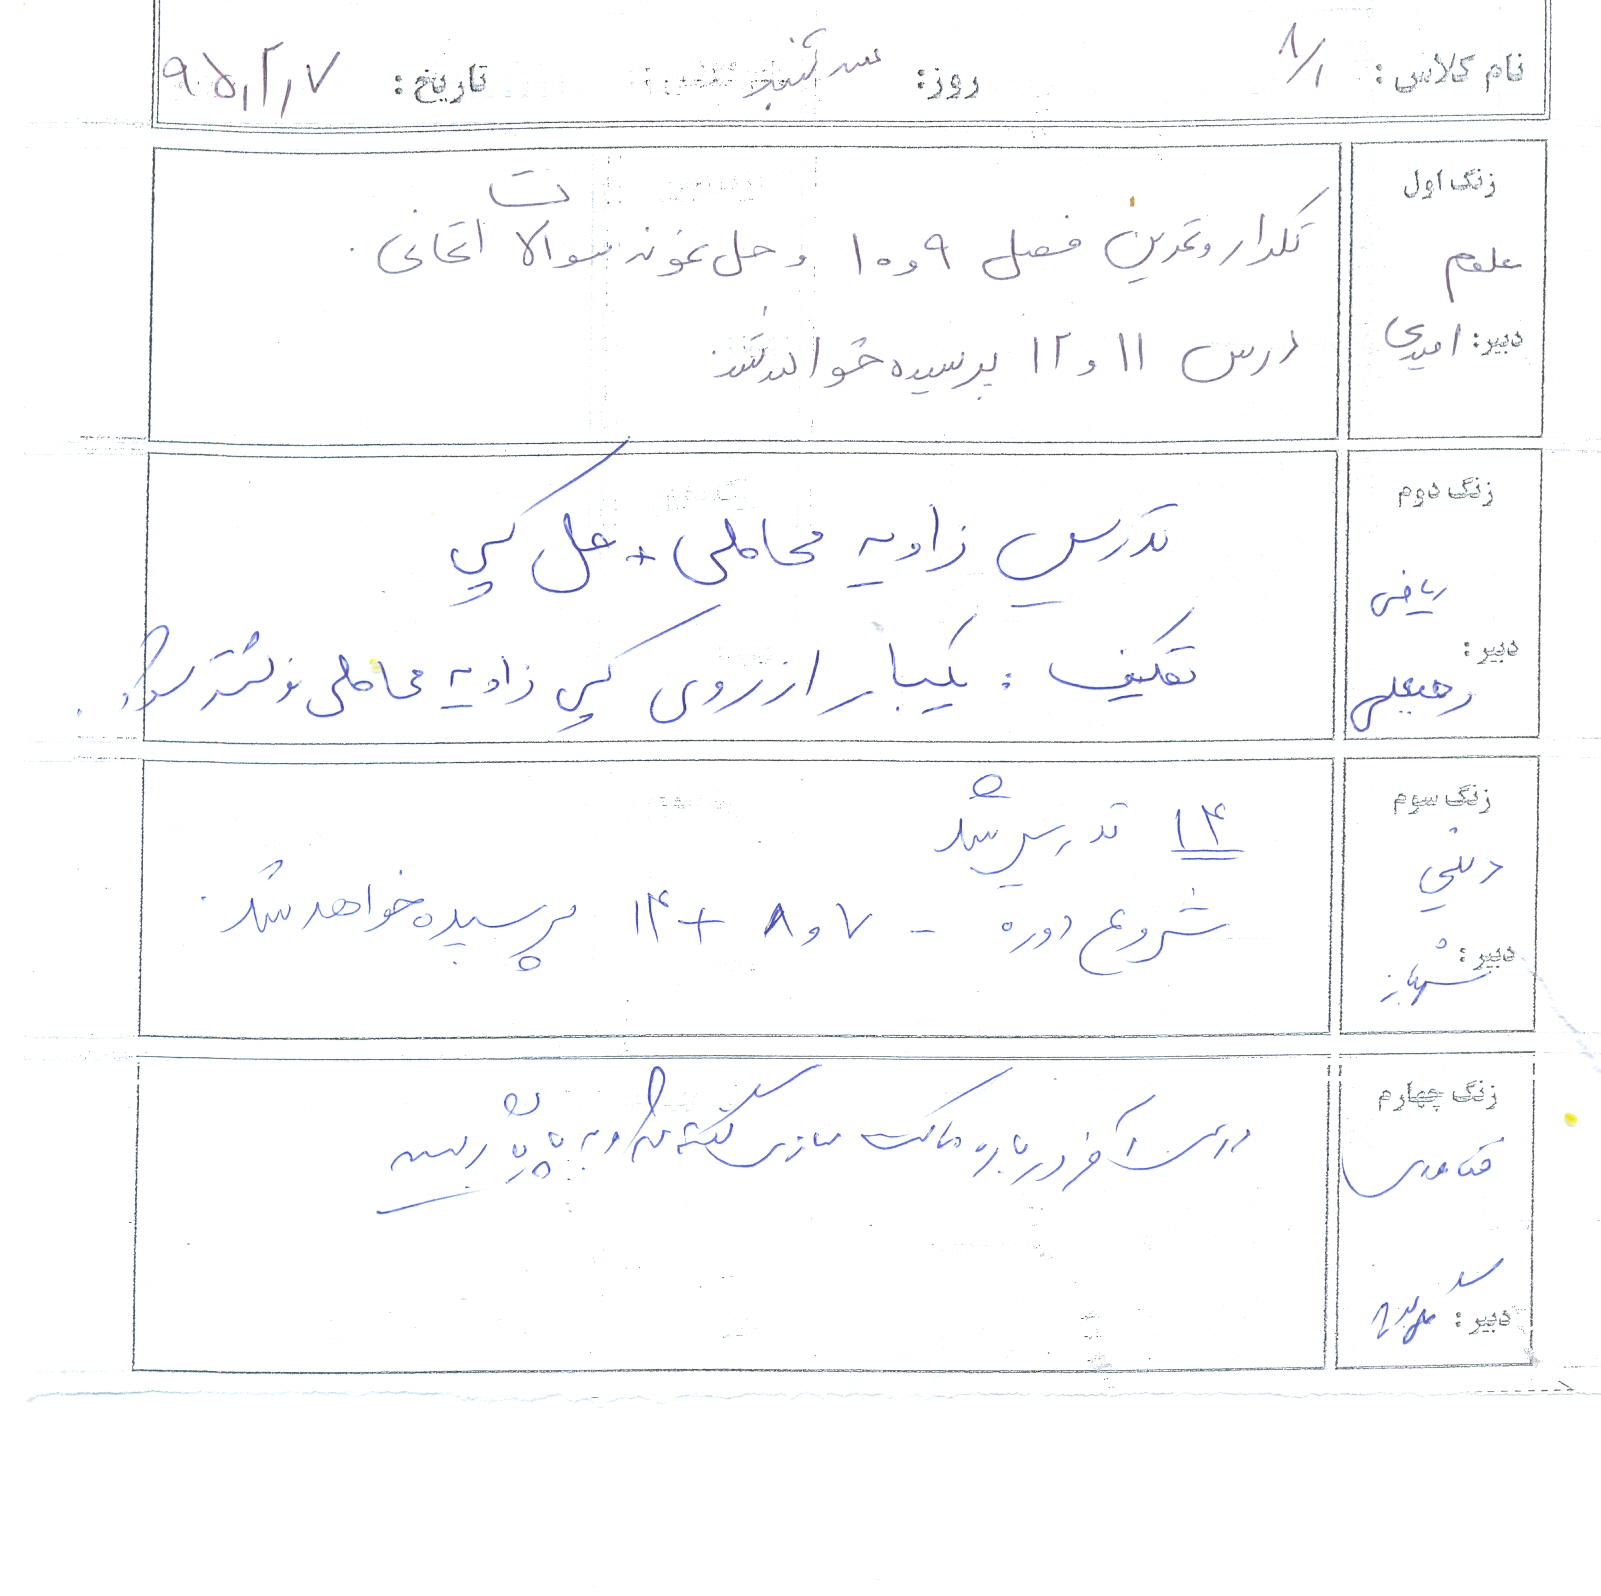 نام کلاس: ۸/۱ روز: سه شنبه تاریخ: ۹۵/۲/۷
زنگ اول
علوم
دبیر: امیدی
تکرار و تمرین فصل ۹ و ۱۰ و حل نمونه سوالات امتحانی.
درس ۱۱ و ۱۲ پرسیده خواهد شد.
زنگ دوم
ریاضی
دبیر:
تدریس زاویه محاطی + حل کپی
تکلیف: یکبار از روی کپی زاویه محاطی نوشته شود.
زنگ سوم
دینی
دبیر:
شهباز
۱۴ تدریس شد
شروع دوره - ۷ و ۸ + ۱۴ پرسیده خواهد شد.
زنگ چهارم
فناوری
دبیر:
درس آخر درباره ماکت سازی گفته شد و به پایان رسید